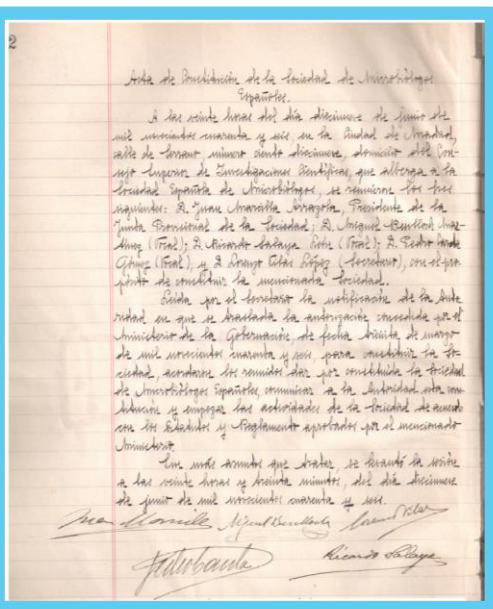 2
Acta de Constitución de la Sociedad de Microbiólogos
Españoles.
A las veinte horas del día diecinueve de junio de
mil novecientos cuarenta y seis, en la Ciudad de Madrid,
calle de Serrano número ciento diecinueve, domicilio del Con-
sejo Superior de Investigaciones Científicas, que alberga a la
Sociedad Española de Microbiólogos, se reunieron los Sres
siguientes: D. Juan Marcilla Arrazola, Presidente de la
Junta Provisional de la Sociedad; D. Miguel Benlloch Mar-
tínez (Vocal); D. Ricardo Salaya (Vocal); D. Pedro
Gómez (Vocal), y D. Lorenzo Vilas López (Secretario), con el pro-
pósito de constituir la mencionada Sociedad.
Leída por el Secretario la notificación de la Auto-
ridad en que se traslada la autorización concedida por el
Ministerio de la Gobernación, de fecha treinta de marzo
de mil novecientos cuarenta y seis, para constituir la So-
ciedad, acordaron los reunidos dar por constituida la Sociedad
de Microbiólogos Españoles, comunicar a la Autoridad esta cons-
titución y empezar las actividades de la Sociedad de acuerdo
con los Estatutos y Reglamento aprobados por el mencionado
Ministerio.
Sin más asuntos que tratar, se levantó la sesión
a las veinte horas y treinta minutos, del día diecinueve
de junio de mil novecientos cuarenta y seis.
Juan Marcilla Miguel Benlloch Lorenzo Vilas
Ricardo Salaya